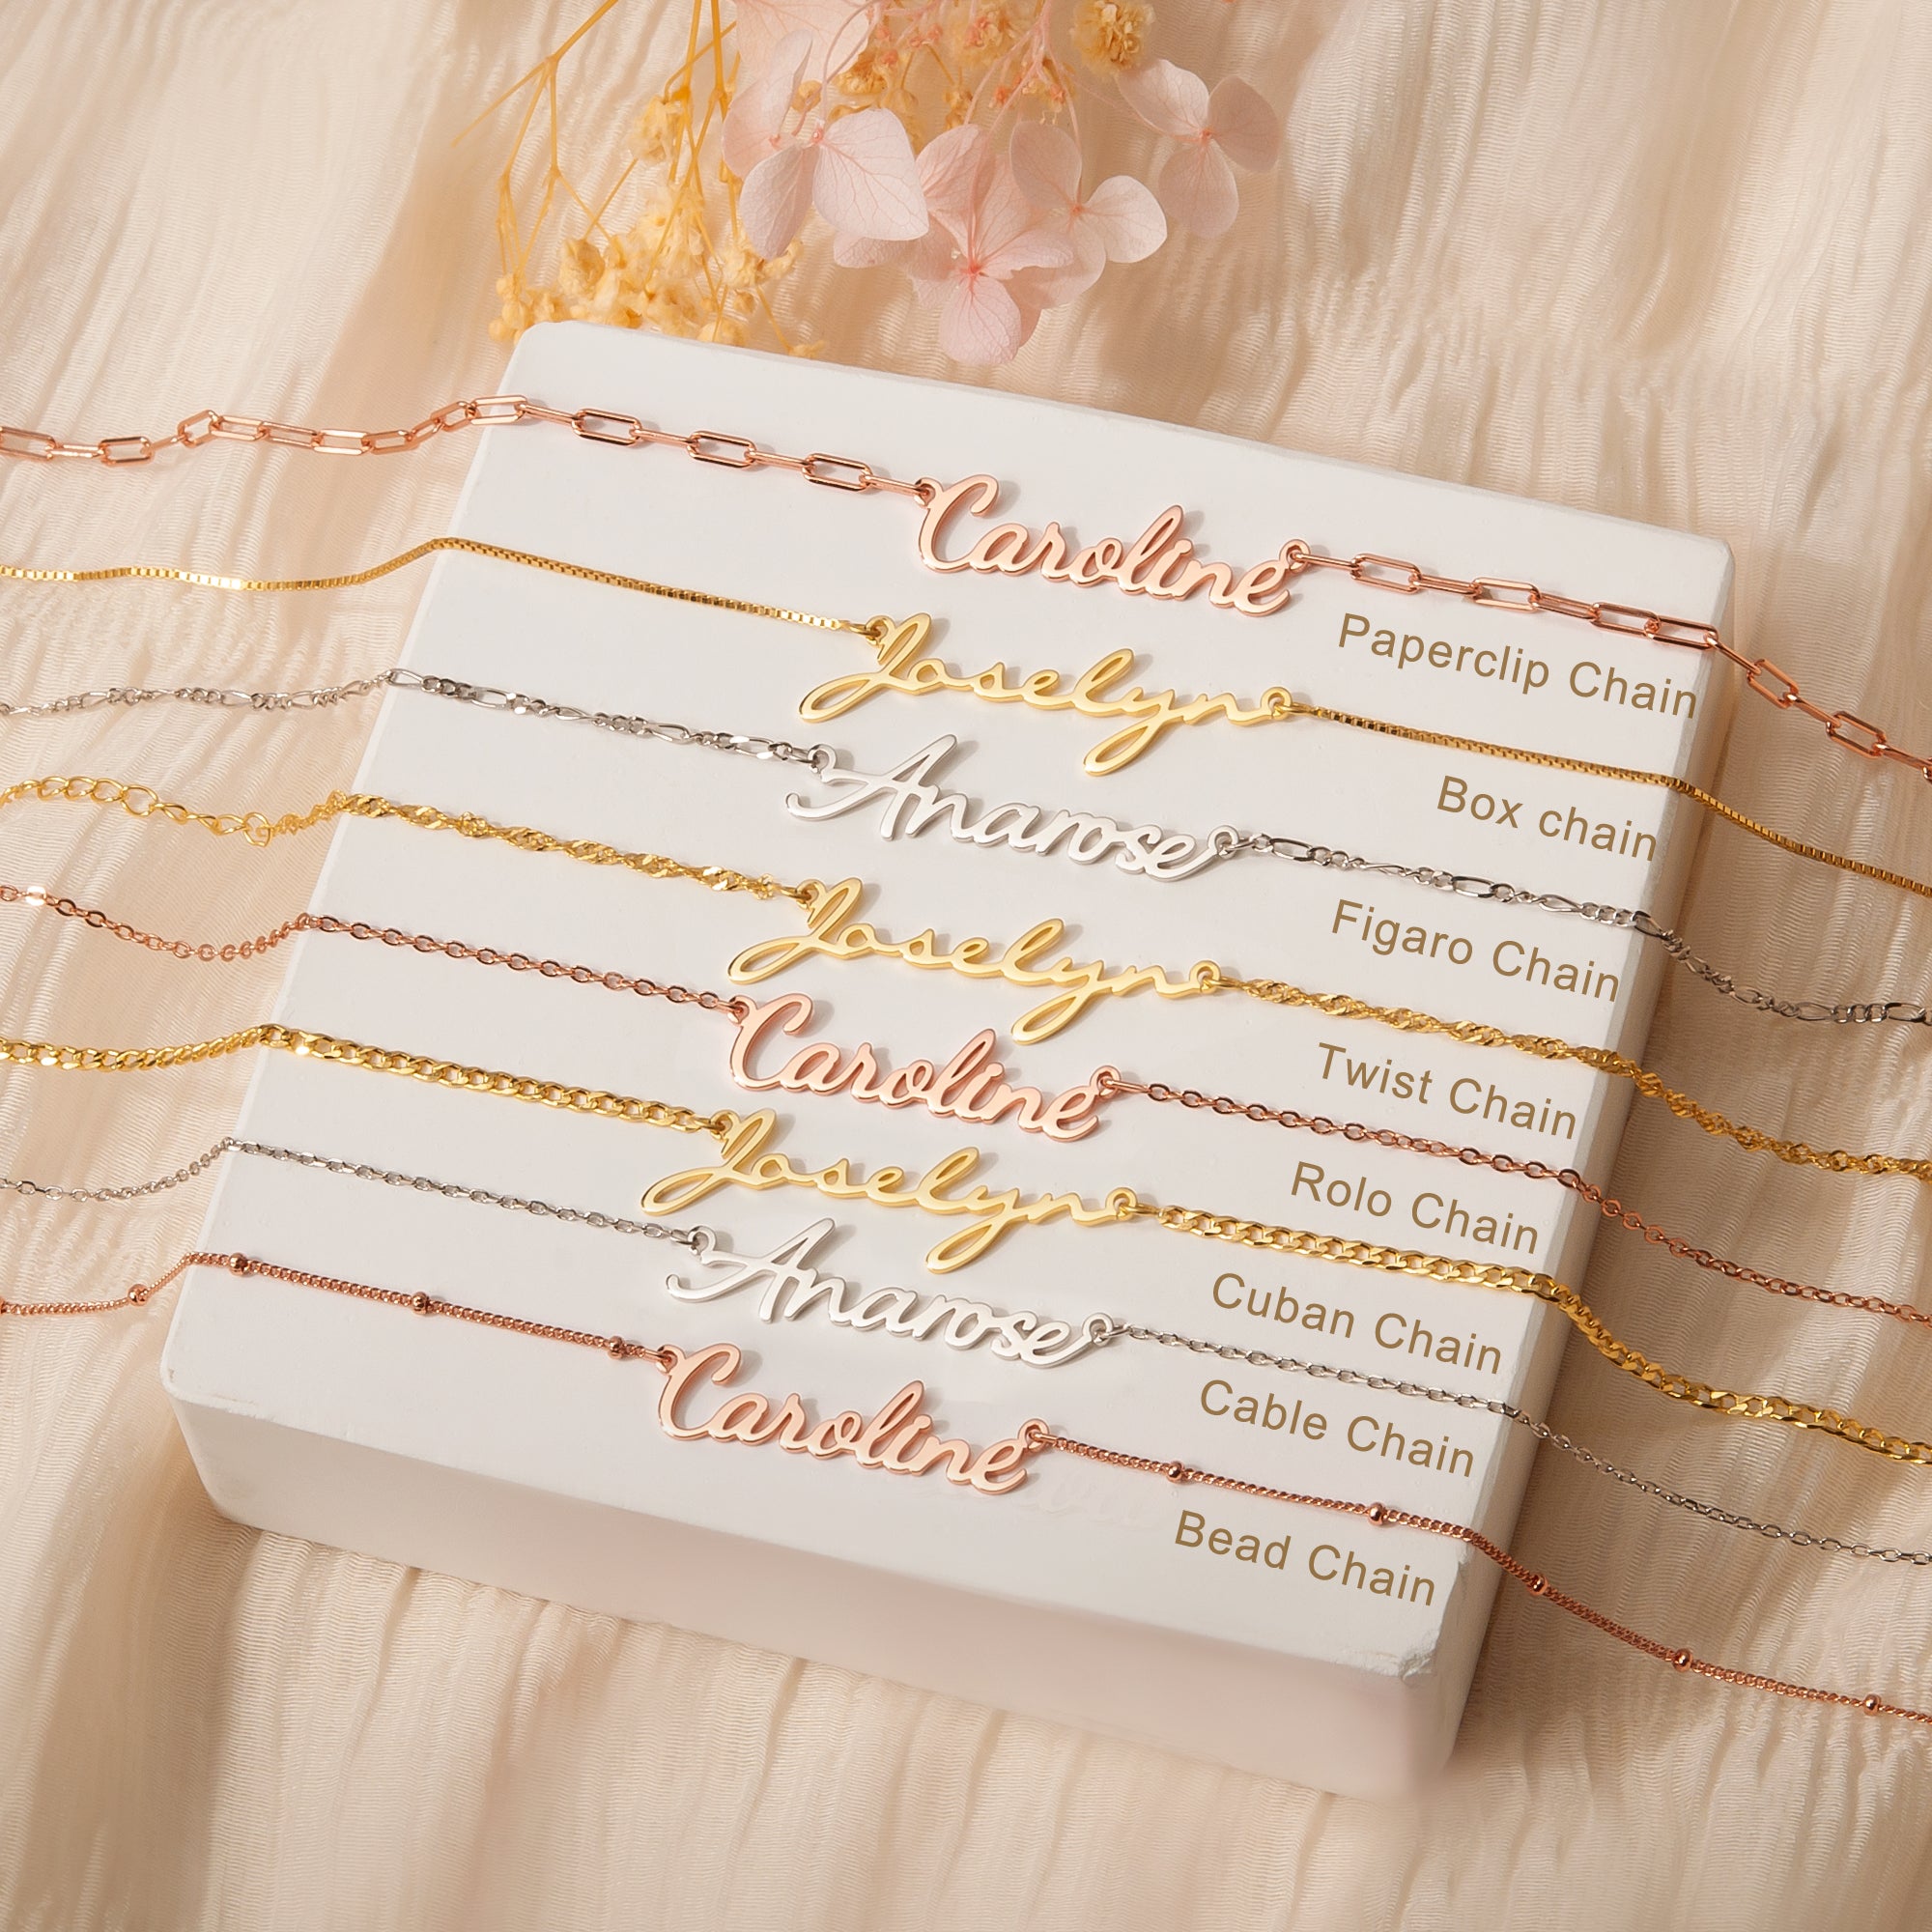 Caroline
Paperclip Chain
Joselyn
Box chain
Anarose
Figaro Chain
Joselyn
Twist Chain
Caroline
Rolo Chain
Joselyn
Cuban Chain
Anarose
Cable Chain
Caroline
Bead Chain